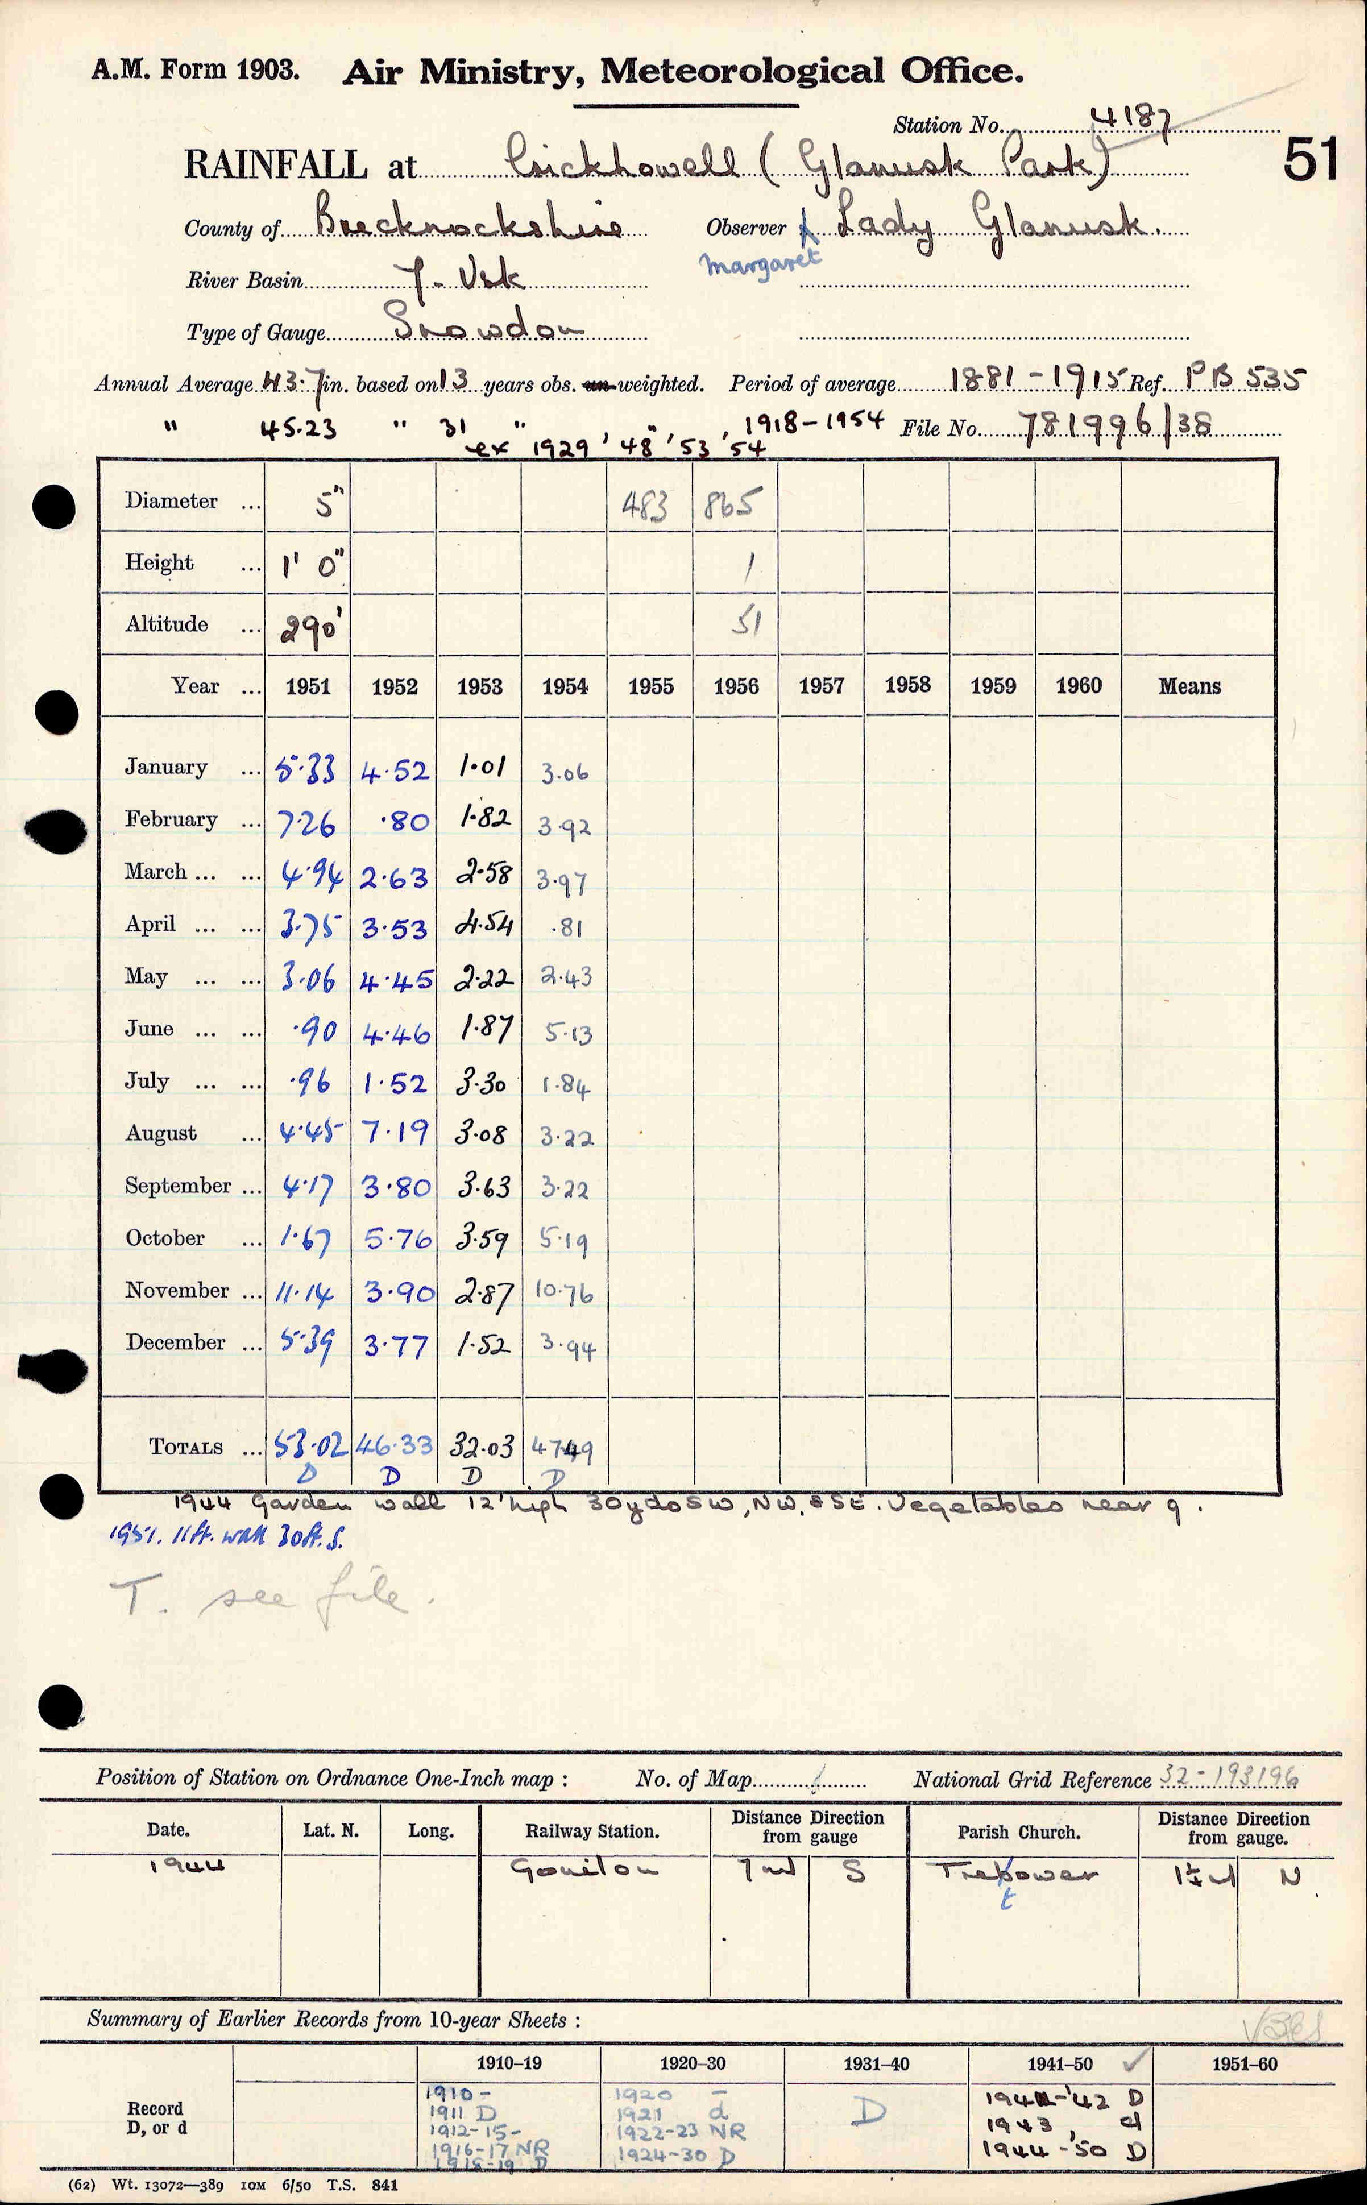 A.M. Form 1903. Air Ministry, Meteorological Office.
Station No. 4187
51
RAINFALL at Crickhowell (Glanusk Park)
County of Brecknockshire Observer Lady Glanusk.
Margaret
River Basin 7. Usk
Type of Gauge Snowdon
Annual Average 43.7 in. based on 13 years obs. un-weighted. Period of average 1881-1915 Ref. PB 535
" 45.23 " 31 " " 1918-1954 File No. 781996/38
ex 1929, '48, '53, '54
Diameter ... 5" 483 865
Height ... 1' 0" 1
Altitude ... 290' 51
Year ... 1951 1952 1953 1954 1955 1956 1957 1958 1959 1960 Means
January ... 5.33 4.52 1.01 3.06
February ... 7.26 .80 1.82 3.92
March ... ... 4.94 2.63 2.58 3.97
April ... ... 3.75 3.53 4.54 .81
May ... ... 3.06 4.45 2.22 2.43
June ... ... .90 4.46 1.87 5.13
July ... ... .96 1.52 3.30 1.84
August ... 4.45 7.19 3.08 3.22
September ... 4.17 3.80 3.63 3.22
October ... 1.67 5.76 3.59 5.19
November ... 11.14 3.90 2.87 10.76
December ... 5.39 3.77 1.52 3.94
TOTALS ... 53.02 46.33 32.03 47.49
D D D D
1944 Garden wall 12' high 30yds SW, NW, & SE. Vegetables near g.
1951. 11ft. wall 30ft. S.
T. see file.
Position of Station on Ordnance One-Inch map : No. of Map National Grid Reference 32-193196
Date. Lat. N. Long. Railway Station. Distance Direction from gauge Parish Church. Distance Direction from gauge.
1944 Govilon 7 ml S Tretower 1¼ N
Summary of Earlier Records from 10-year Sheets :
1910–19 1920–30 1931–40 1941–50 1951–60
Record D, or d
1910 - 1920 - D 1941-'42 D
1911 D 1921 d 1943, d
1912-15- 1922-23 NR 1944-'50 D
1916-17 NR 1924-30 D
1918-19 D
(62) Wt. 13072—389 10M 6/50 T.S. 841